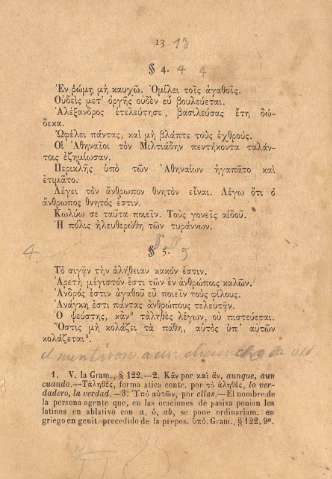 13 13
§ 4. 4 4
Ἐν ῥώμῃ μὴ καυχῶ. Ὁμίλει τοῖς ἀγαθοῖς.
Οὐδεὶς μετ᾽ ὀργῆς οὐδὲν εὖ βουλεύεται.
Ἀλέξανδρος ἐτελεύτησε, βασιλεύσας ἔτη δώ-
δεκα.
Ὠφέλει πάντας, καὶ μὴ βλάπτε τοὺς ἐχθρούς.
Οἱ Ἀθηναῖοι τὸν Μιλτιάδην πεντήκοντα ταλάν-
τοις ἐζημίωσαν.
Περικλῆς ὑπὸ τῶν Ἀθηναίων ἠγαπᾶτο καὶ
ἐτιμᾶτο.
Λέγει τὸν ἄνθρωπον θνητὸν εἶναι. Λέγω ὅτι ὁ
ἄνθρωπος θνητός ἐστιν.
Κωλύω σε ταῦτα ποιεῖν. Τοὺς γονεῖς αἰδοῦ.
Ἡ πόλις ἠλευθερώθη τῶν τυράννων.
4. § 5. 5
Τὸ σιγῇν τὴν ἀλήθειαν κακόν ἐστιν.
Ἀρετὴ μέγιστόν ἐστι τῶν ἐν ἀνθρώποις καλῶν.
Ἀνδρός ἐστιν ἀγαθοῦ εὖ ποιεῖν τοὺς φίλους.
Ἀνάγκη ἐστὶ πάντας ἀνθρώπους τελευτῇν.
Ὁ ψεύστης, κἂν² τἀληθὲς λέγων, οὐ πιστεύεται.
Ὅστις μὴ κολάζει τὰ πάθη, αὐτὸς ὑπ᾽ αὐτῶν
κολάζεται³.
el mentiroso aun
1. V. la Gram., § 122.—2. Κἄν por καὶ ἄν, aunque, aun
cuando.—Ταληθές, forma ática contr. por τὸ ἀληθές, lo ver-
dadero, la verdad.—3. Ὑπὸ αὐτῶν, por ellas.—El nombre de
la persona agente que, en las oraciones de pasiva ponian los
latinos en ablativo con a, ó, ab, se pone ordinariam. en
griego en genit. precedido de la prepos. ὑπό. Gram., § 122, 9ª.